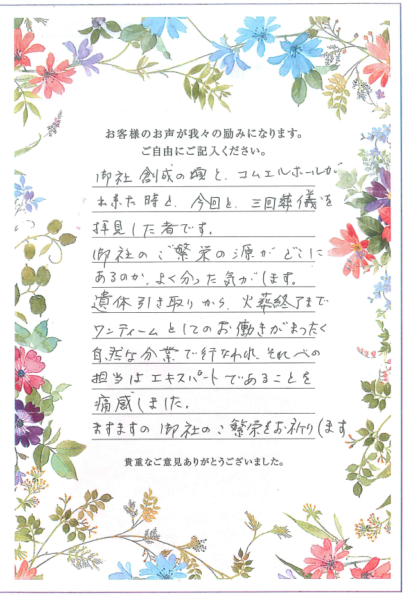 お客様のお声が我々の励みになります。
ご自由にご記入ください。
御社創成の頃と、コムエルホールが
出来た時と、今回と、三回葬儀を
拝見した者です。
御社のご繁栄の源がどこに
あるのか、よく分った気がします。
遺体引き取りから、火葬終了まで
ワンティームとしてのお働きがまったく
自然な分業で行なわれ、それぞれの
担当はエキスパートであることを
痛感しました。
ますますの御社のご繁栄をお祈りします
貴重なご意見ありがとうございました。